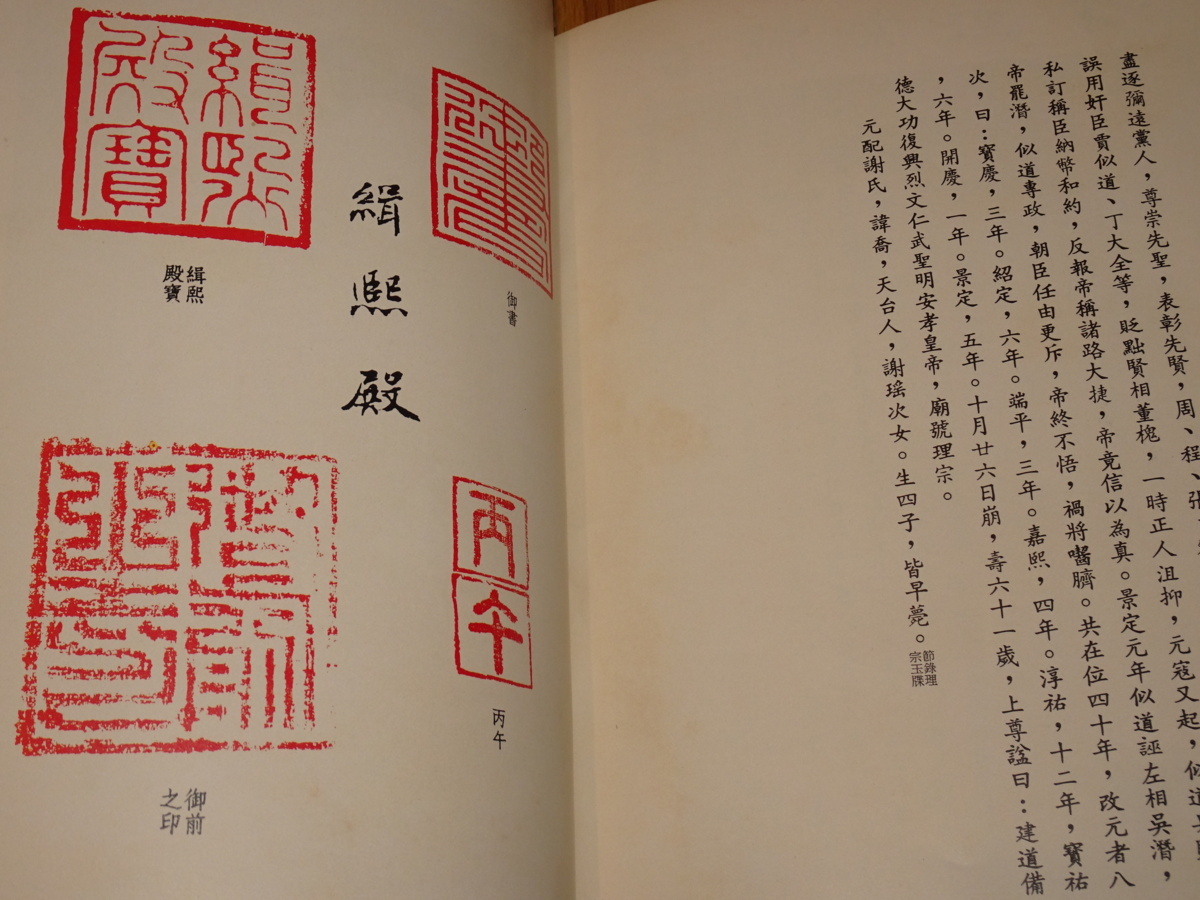 盡逐彌遠黨人，尊崇先聖，表彰先賢，周、程、張、
誤用奸臣賈似道、丁大全等，貶黜賢相董槐，一時正人沮抑，元寇又起，似道
私訂稱臣納幣和約，反報帝稱諸路大捷，帝竟信以為真。景定元年似道誣左相吳潛，
帝罷潛，似道專政，朝臣任由更斥，帝終不悟，禍將嚙臍。共在位四十年，改元者八
次，曰：寶慶，三年。紹定，六年。端平，三年。嘉熙，四年。淳祐，十二年，寶祐
，六年。開慶，一年。景定，五年。十月廿六日崩，壽六十一歲，上尊諡曰：建道備
德大功復興烈文仁武聖明安孝皇帝，廟號理宗。
元配謝氏，諱喬，天台人，謝瑤次女。生四子，皆早薨。
節錄理
宗玉牒
御書
御書
丙午
丙午
緝熙殿
緝熙
殿寶
緝熙
殿寶
御前
之印
御前
之印